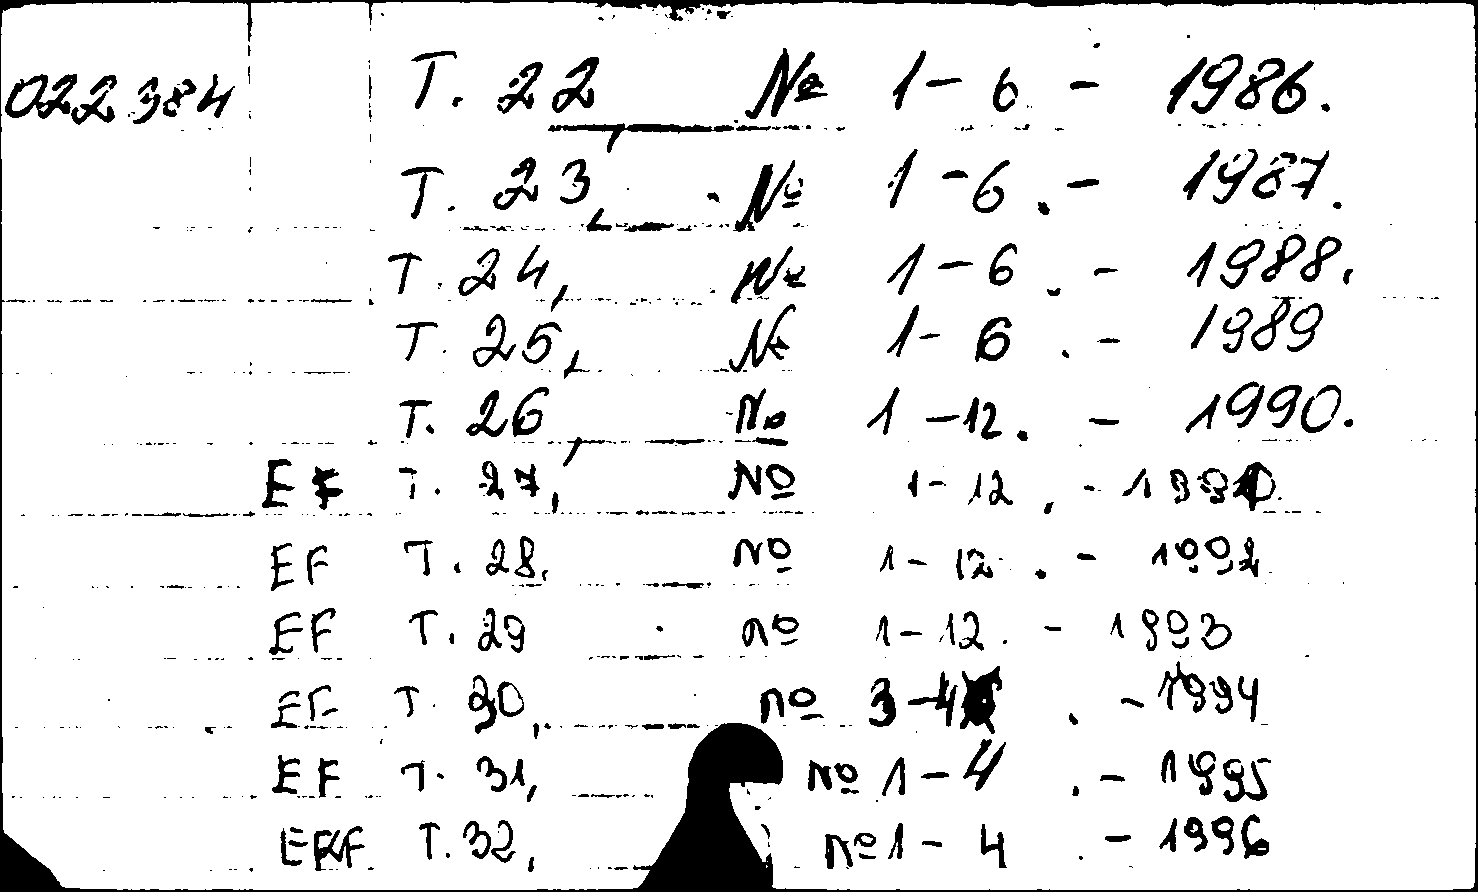 022384 T. 22, № 1-6. - 1986.
T. 23, № 1-6. - 1987.
T. 24, № 1-6. - 1988.
T. 25, № 1-6. - 1989
T. 26, № 1-12. - 1990.
EF T. 27, № 1-12. - 1991
EF T. 28. № 1-12. - 1992
EF T. 29 № 1-12. - 1993
EF T. 30, № 3-4. - 1994
EF T. 31, № 1-4. - 1995
T. 32, № 1-4. - 1996